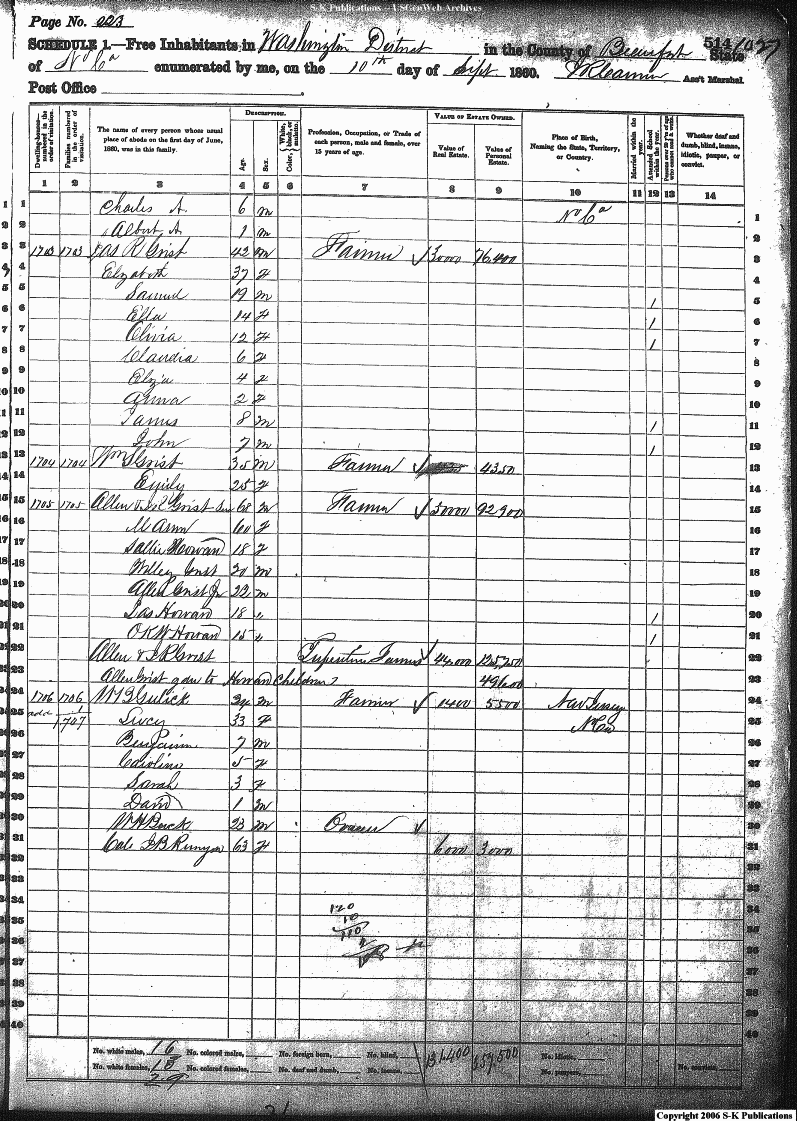 S-K Publications -- USGenWeb Archives
Page No. 223
514/1027
SCHEDULE 1.—Free Inhabitants in Washington District in the County of Beaufort State
of No Ca enumerated by me, on the 10th day of Sept 1860. Ass't Marshal.
Post Office
Dwelling-houses—numbered in the order of visitation.
Families numbered in the order of visitation.
The name of every person whose usual place of abode on the first day of June, 1860, was in this family.
DESCRIPTION.
Age.
Sex.
Color, White, black, or mulatto.
Profession, Occupation, or Trade of each person, male and female, over 15 years of age.
VALUE OF ESTATE OWNED.
Value of Real Estate.
Value of Personal Estate.
Place of Birth, Naming the State, Territory, or Country.
Married within the year.
Attended School within the year.
Persons over 20 y'rs of age who cannot read & write.
Whether deaf and dumb, blind, insane, idiotic, pauper, or convict.
1 2 3 4 5 6 7 8 9 10 11 12 13 14
1 Charles A. 6 m No Ca 1
2 Albert A 1 m 2
3 1703 1703 Jas R Grist 42 m Farmer 30000 76,400 3
4 Elizabeth 37 f 4
5 Samuel 19 m 1 5
6 Ella 14 f 1 6
7 Olivia 12 f 1 7
8 Claudia 6 f 8
9 Eliza 4 f 9
10 Anna 2 f 10
11 James 8 m 1 11
12 John 7 m 1 12
13 1704 1704 Wm Grist 35 m Farmer 4350 13
14 Emily 25 f 14
15 1705 1705 Allen Grist Sen 68 m Farmer 50000 92,900 15
16 M Ann 60 f 16
17 Sallie Howard 18 f 17
18 Willey Grist 20 m 18
19 Allen Grist Jr 22 m 19
20 Jas Howard 18 " 1 20
21 O K W Howard 15 " 1 21
22 Allen & J R Grist Turpentine Farmers 44,000 125,750 22
23 Allen Grist gdn to Howard Children 49,600 23
24 1706 1706 W Gulick 34 m Farmer 1400 5500 New Jersey 24
25 add 1 1,707 Lucy 33 f No Ca 25
26 Benjamin 7 m 26
27 Caroline 5 f 27
28 Sarah 3 f 28
29 David 1 m 29
30 W H Buck 23 m Overseer 30
31 J B Runyon 63 f 6000 3000 31
32
33
34
35
36
37
38
39
40
120
10
110
No. white males, 16 No. colored males, No. foreign born, No. blind, 131,400 357,500 No. idiotic,
No. white females, 13 No. colored females, No. deaf and dumb, No. insane, No. paupers, No. convicts,
29
Copyright 2006 S-K Publications